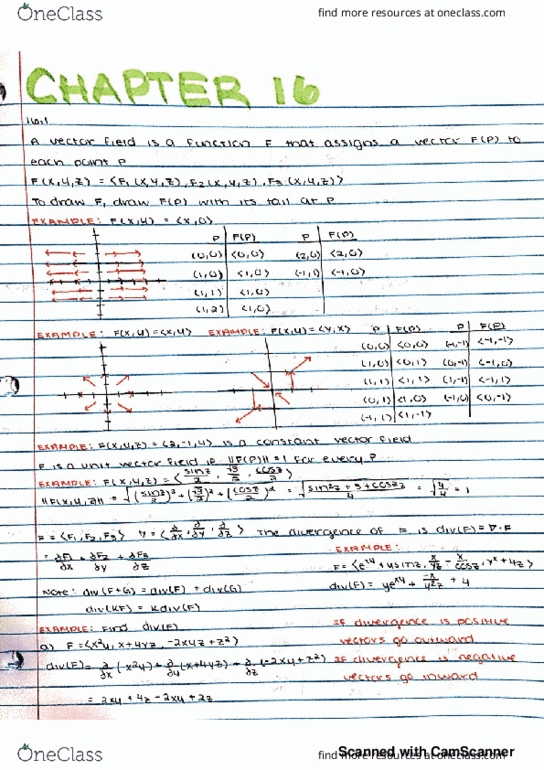 OneClass
find more resources at oneclass.com
CHAPTER 16
16.1
A vector field is a function F that assigns a vector F(P) to
each point P
F(x,y,z) = <F1(x,y,z), F2(x,y,z), F3(x,y,z)>
To draw F, draw F(P) with its tail at P
EXAMPLE: F(x,y) = <x,0>
P F(P) P F(P)
(0,0) <0,0> (2,0) <2,0>
(1,0) <1,0> (-1,1) <-1,0>
(1,1) <1,0>
(1,2) <1,0>
EXAMPLE: F(x,y)=<x,y> EXAMPLE: F(x,y)=<y,x> P F(P) P F(P)
(0,0) <0,0> (-1,-1) <-1,-1>
(1,0) <0,1> (0,-1) <-1,0>
(1,1) <1,1> (1,-1) <-1,1>
(0,1) <1,0> (-1,0) <0,-1>
(-1,1) <1,-1>
EXAMPLE: F(x,y,z) = <3,-1,4> is a constant vector field
F is a unit vector field if ||F(P)|| = 1 for every P
EXAMPLE: F(x,y,z) = <sinz/2, √3/2, cosz/2>
||F(x,y,z)|| = √(sinz/2)²+(√3/2)²+(cosz/2)² = √sin²z+3+cos²z/4 = √4/4 = 1
F = <F1, F2, F3> ∇ = <∂/∂x, ∂/∂y, ∂/∂z> The divergence of F is div(F) = ∇·F
= ∂F1/∂x + ∂F2/∂y + ∂F3/∂z
EXAMPLE:
F = <e^xy + y sinz, x/yz - x/cosz, y^x + 4z>
NOTE: div(F+G) = div(F) + div(G)
div(F) = ye^xy + -x/y²z + 4
div(KF) = Kdiv(F)
EXAMPLE: Find div(F)
a) F = <x²y, x+4yz, -2xyz+z²>
div(F) = ∂/∂x (x²y) + ∂/∂y (x+4yz) + ∂/∂z (-2xy+z²)
= 2xy + 4z - 2xy + 2z
If divergence is positive
vectors go outward
If divergence is negative
vectors go inward
Scanned with CamScanner
OneClass
find more resources at oneclass.com